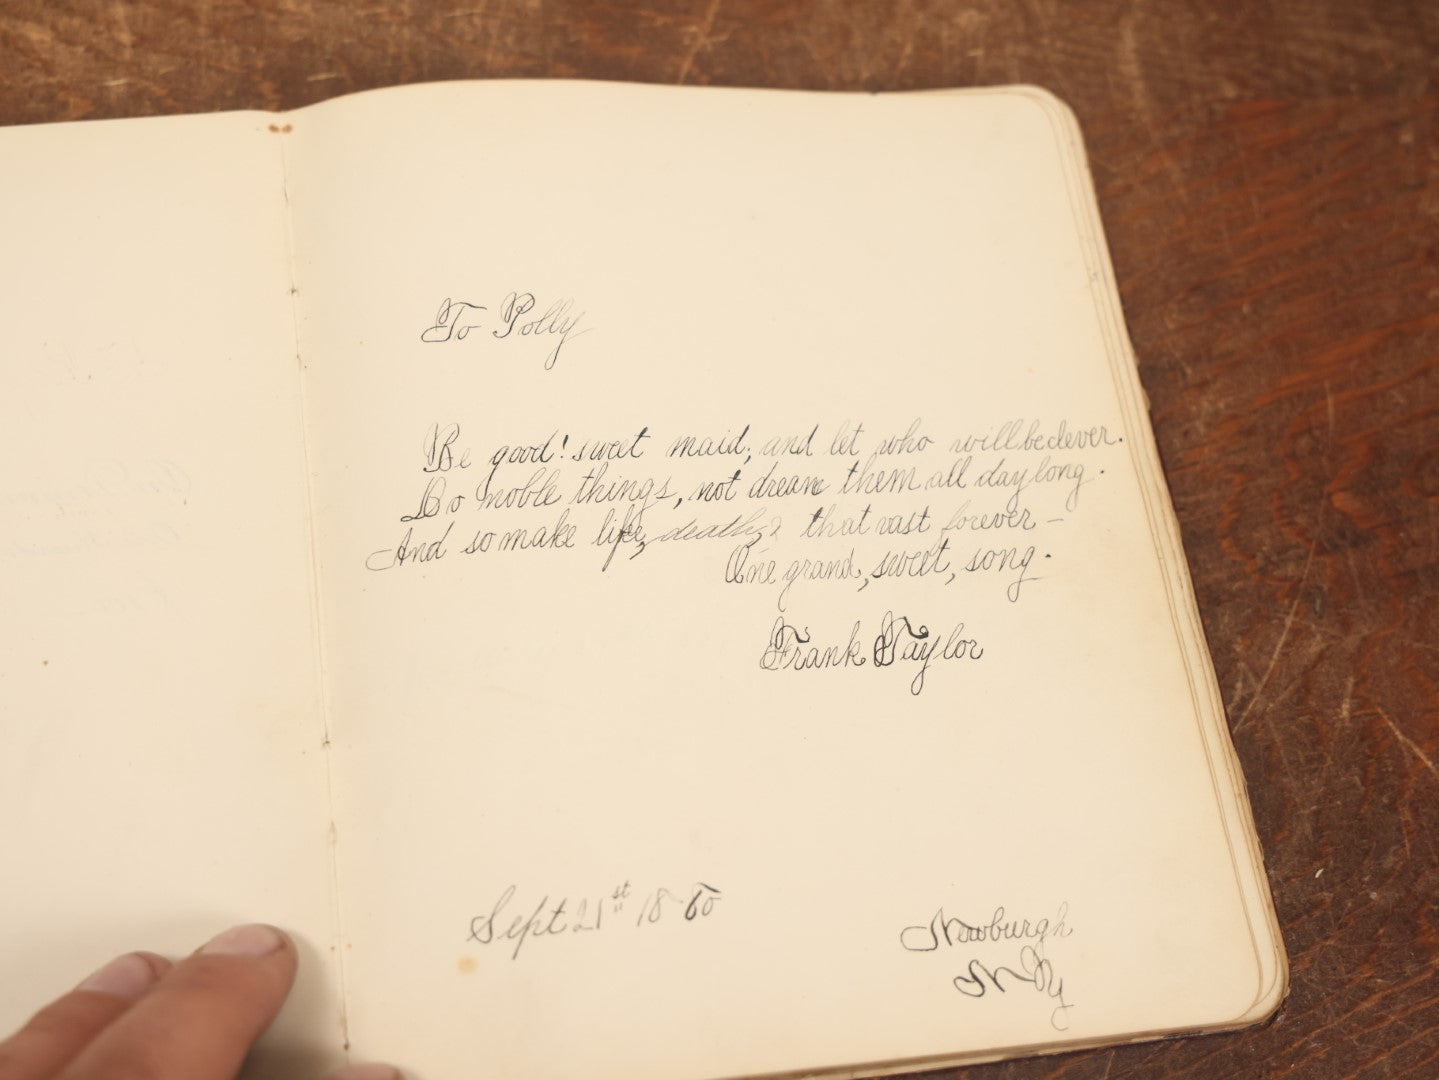 To Polly
Be good! sweet maid, and let who will be clever.
Do noble things, not dream them all day long.
And so make life, death, & that vast forever –
One grand, sweet, song.
Frank Taylor
Sept 21st 1880
Newburgh
N Y